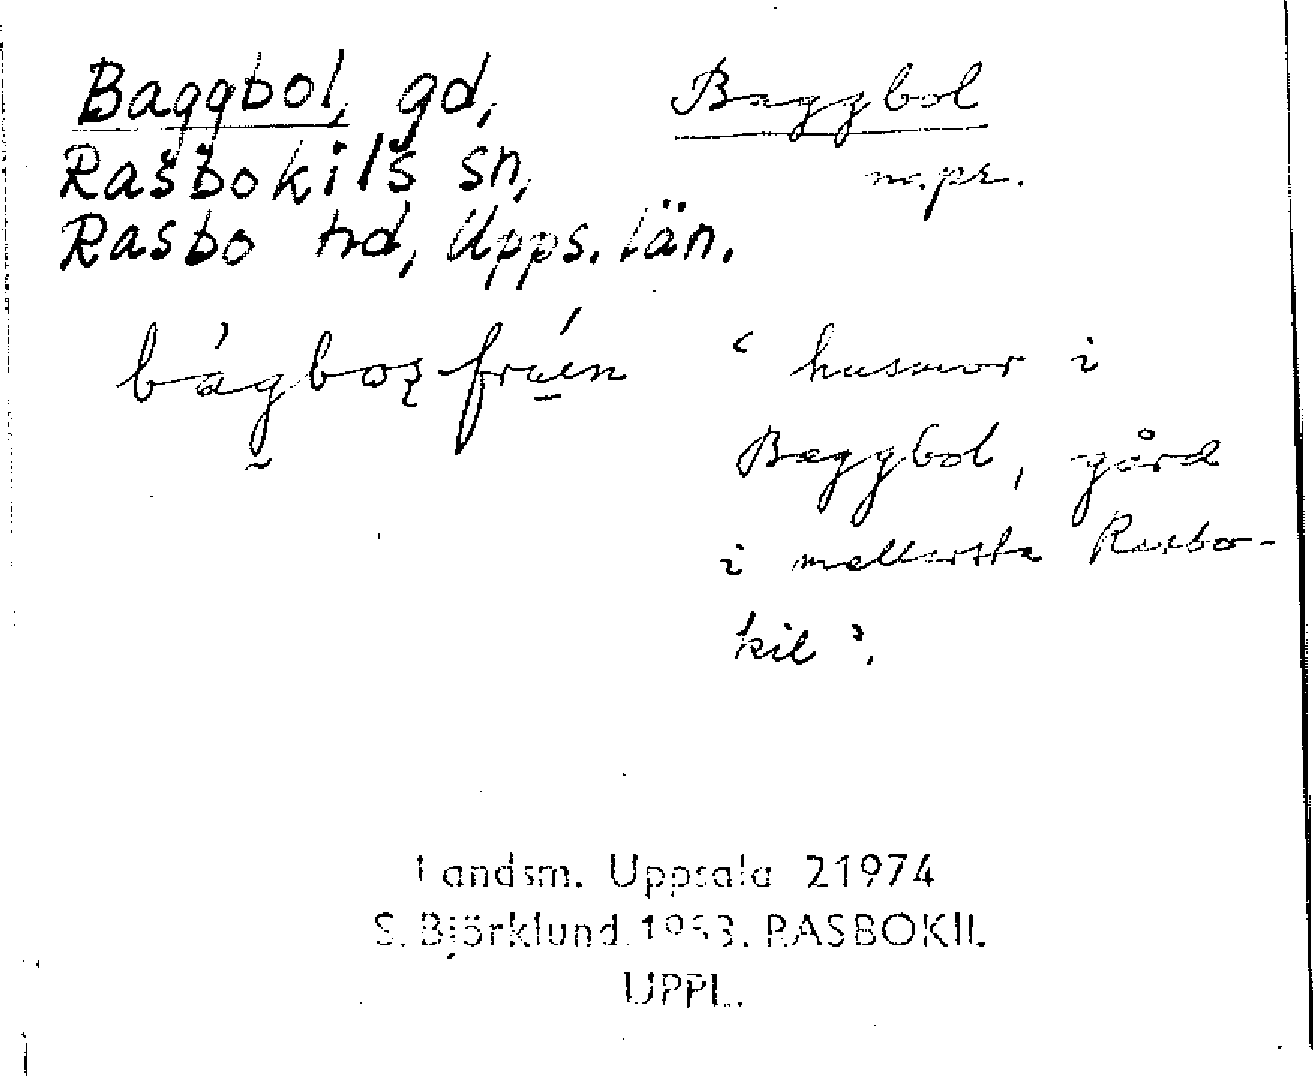 Baggbol, gd,
Rasbokils sn,
Rasbo hd, Upps. län.
Baggbol
n.pr.
"husmor i
Baggbol, gård
i mellersta Rasbo-
kil".
Landsm. Uppsala 21974
S. Björklund. RASBOKIL
UPPL.